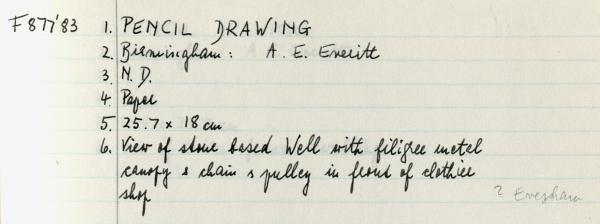 F877'83 1. PENCIL DRAWING
2. Birmingham: A. E. Everitt
3. N.D.
4. Paper
5. 25.7 x 18 cm
6. View of stone based Well with filigree metal
canopy & chain & pulley in front of clothier
shop
? Evesham